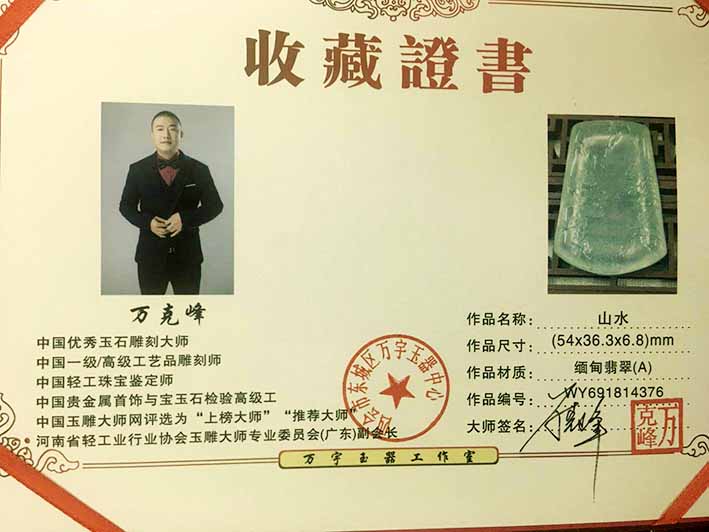 收藏證書
万克峰
中国优秀玉石雕刻大师
中国一级/高级工艺品雕刻师
中国轻工珠宝鉴定师
中国贵金属首饰与宝玉石检验高级工
中国玉雕大师网评选为“上榜大师”“推荐大师”
河南省轻工业行业协会玉雕大师专业委员会(广东)副会长
作品名称: 山水
作品尺寸: (54x36.3x6.8)mm
作品材质: 缅甸翡翠(A)
作品编号: WY691814376
大师签名:
万克峰
四会市东城区万宇玉器中心
万宇玉器工作室